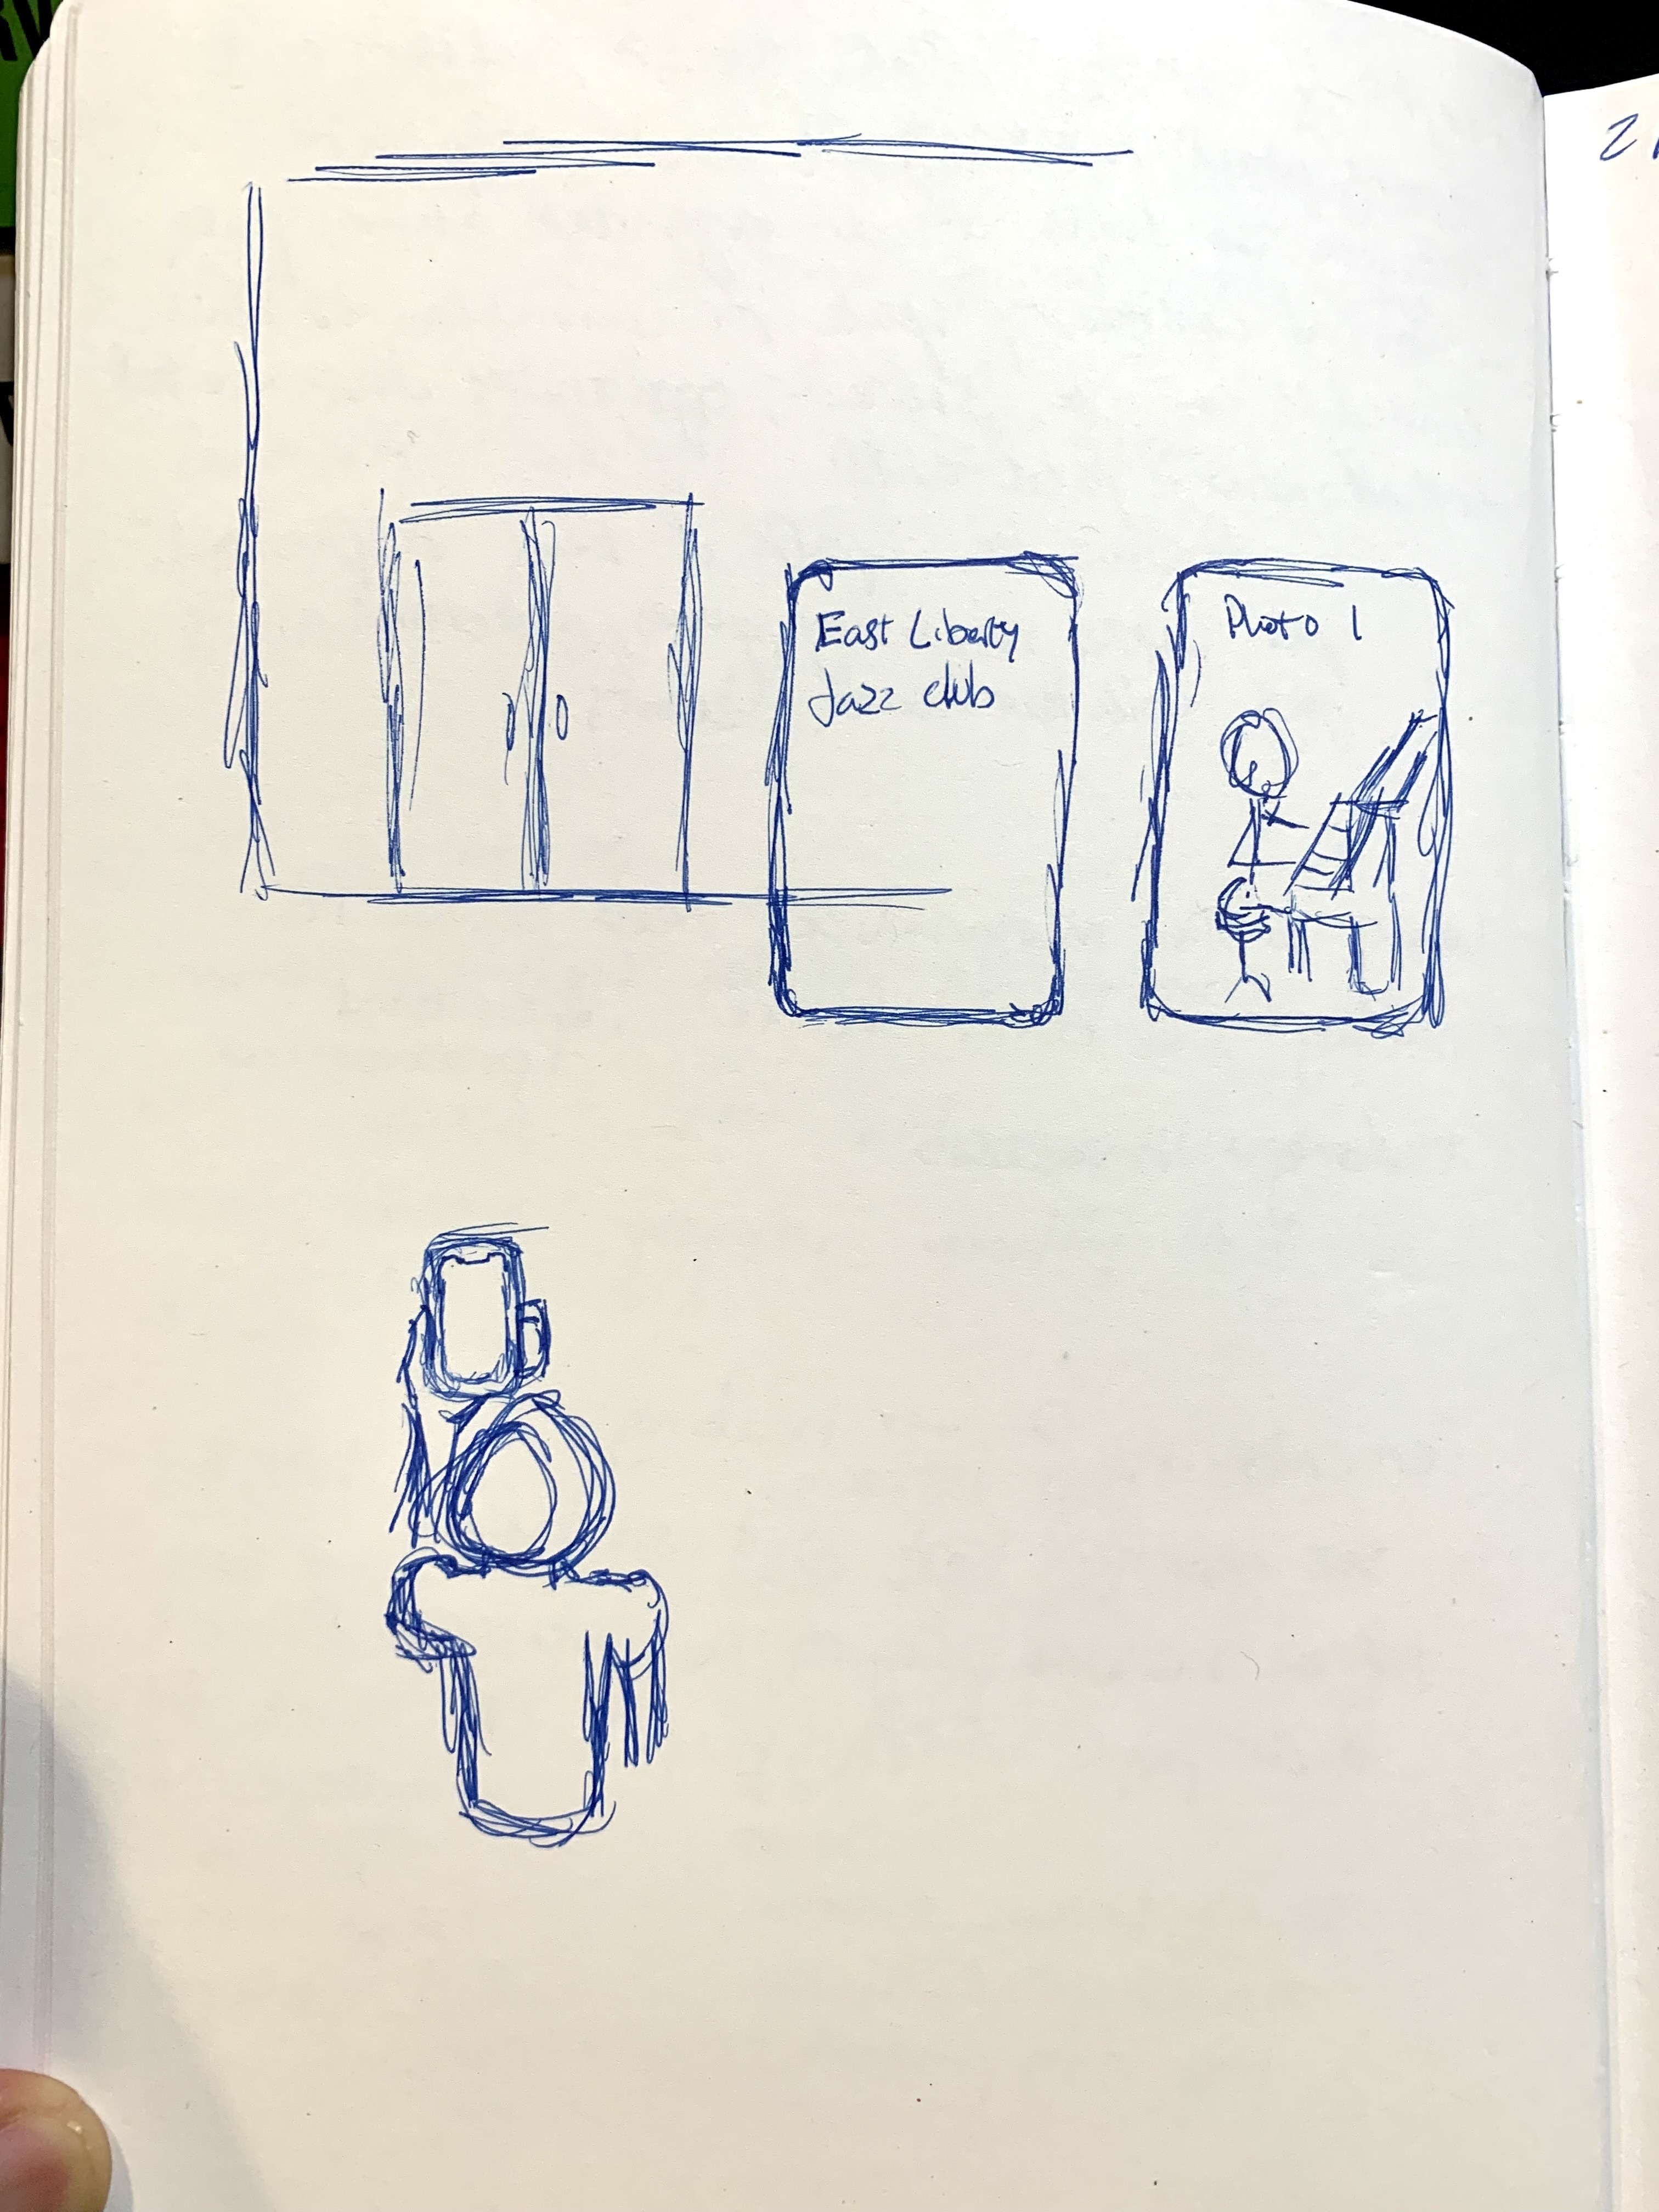 East Liberty
Jazz club
Photo 1